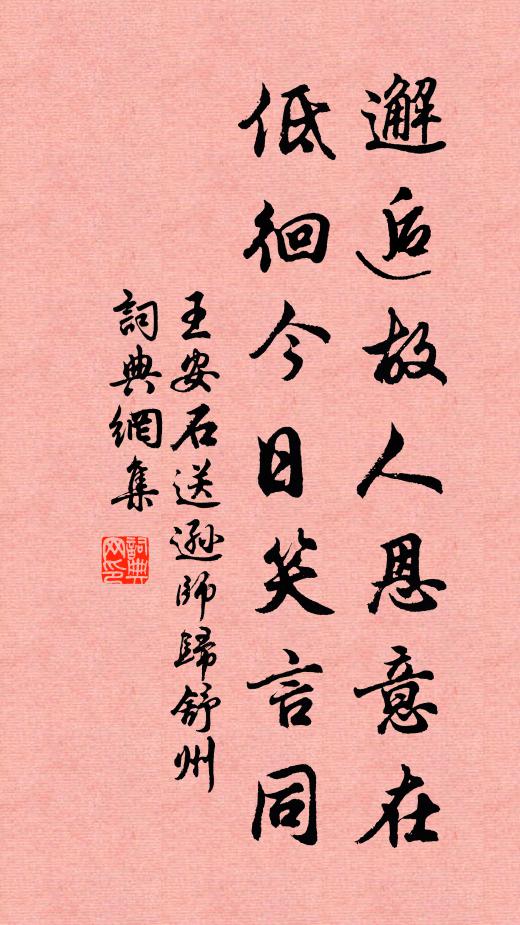 邂逅故人恩意在
低徊今日笑言同
王安石送逊師歸舒州
詞典網集
詞典网印